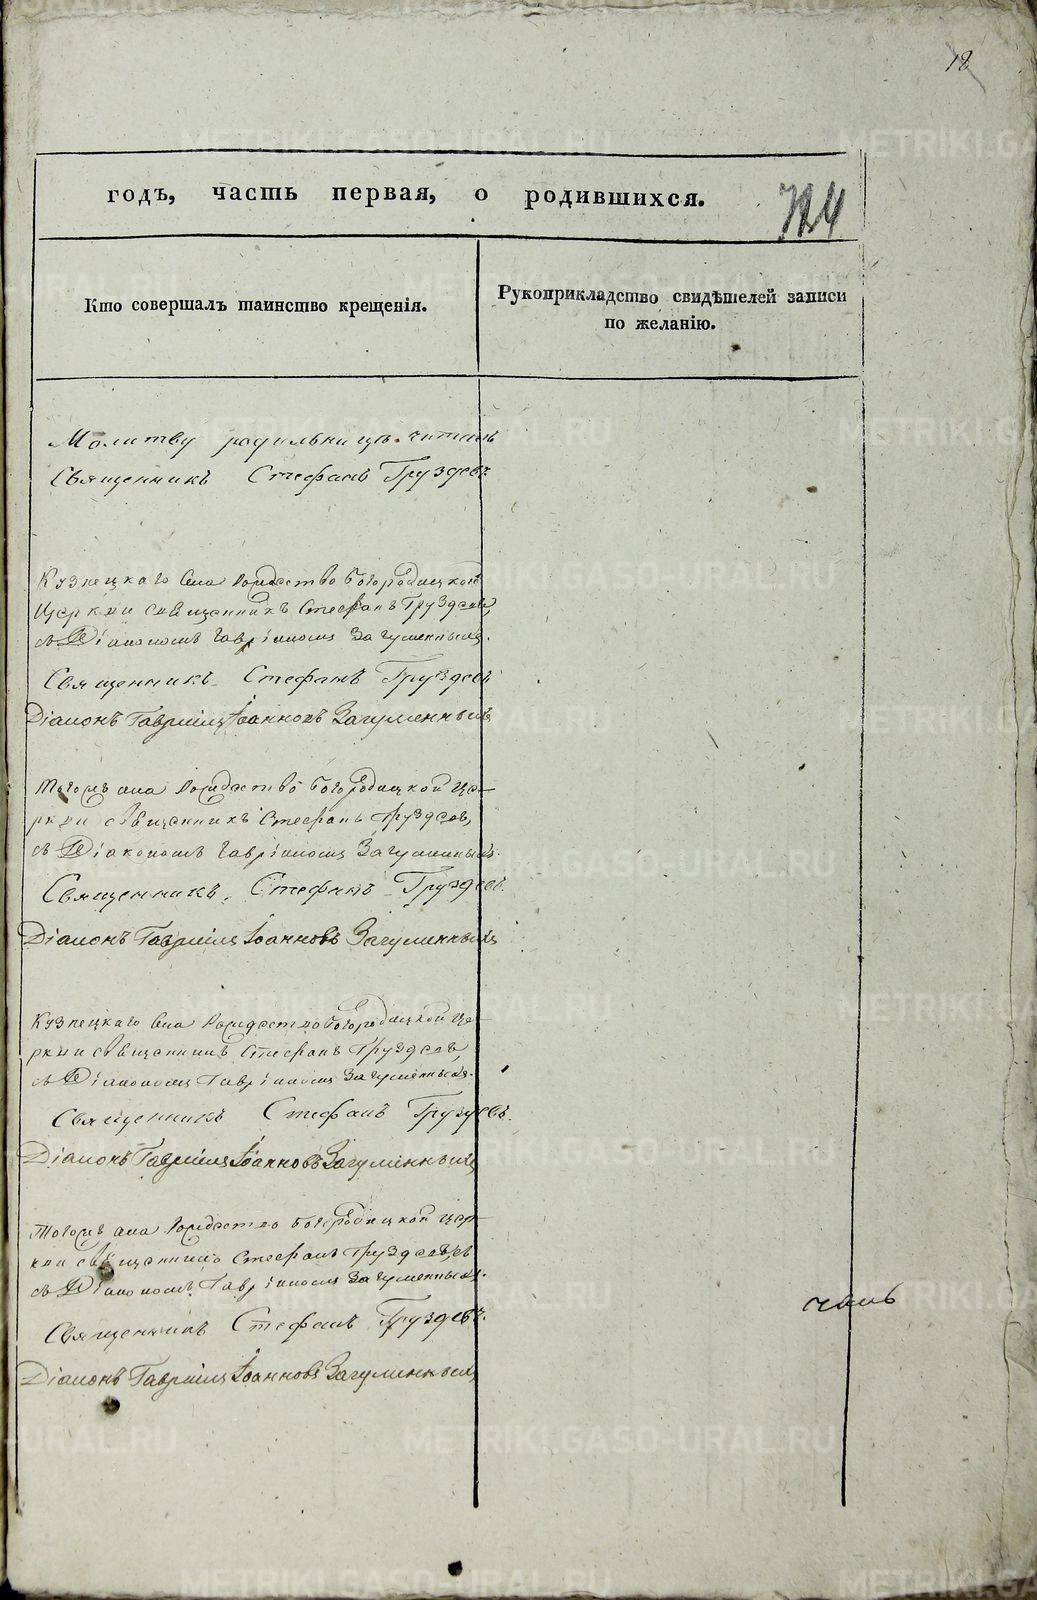 18
годъ, часть первая, о родившихся.
724
Кто совершалъ таинство крещенія.
Рукоприкладство свидѣтелей записи
по желанію.
Молитву родильницѣ читалъ
Священникъ Стефанъ Груздевъ
Кузнецкаго села Рождество Богородицкой
Церкви священникъ Стефанъ Груздевъ,
съ Діакономъ Гавріиломъ Загуменныхъ.
Священникъ Стефанъ Груздевъ
Діаконъ Гавріилъ Іоанновъ Загуменныхъ
Тогожъ села Рождество Богородицкой Це-
ркви священникъ Стефанъ Груздевъ,
съ Діакономъ Гавріиломъ Загуменныхъ.
Священникъ Стефанъ Груздевъ.
Діаконъ Гавріилъ Іоанновъ Загуменныхъ
Кузнецкаго села Рождество Богородицкой Це-
ркви священникъ Стефанъ Груздевъ,
съ Діакономъ Гавріиломъ Загуменныхъ.
Священникъ Стефанъ Груздевъ.
Діаконъ Гавріилъ Іоанновъ Загуменныхъ
Тогожъ села Рождество Богородицкой Цер-
кви священникъ Стефанъ Груздевъ,
съ Діакономъ Гавріиломъ Загуменныхъ.
Священникъ Стефанъ Груздевъ.
Діаконъ Гавріилъ Іоанновъ Загуменныхъ
METRIKI.GASO-URAL.RU